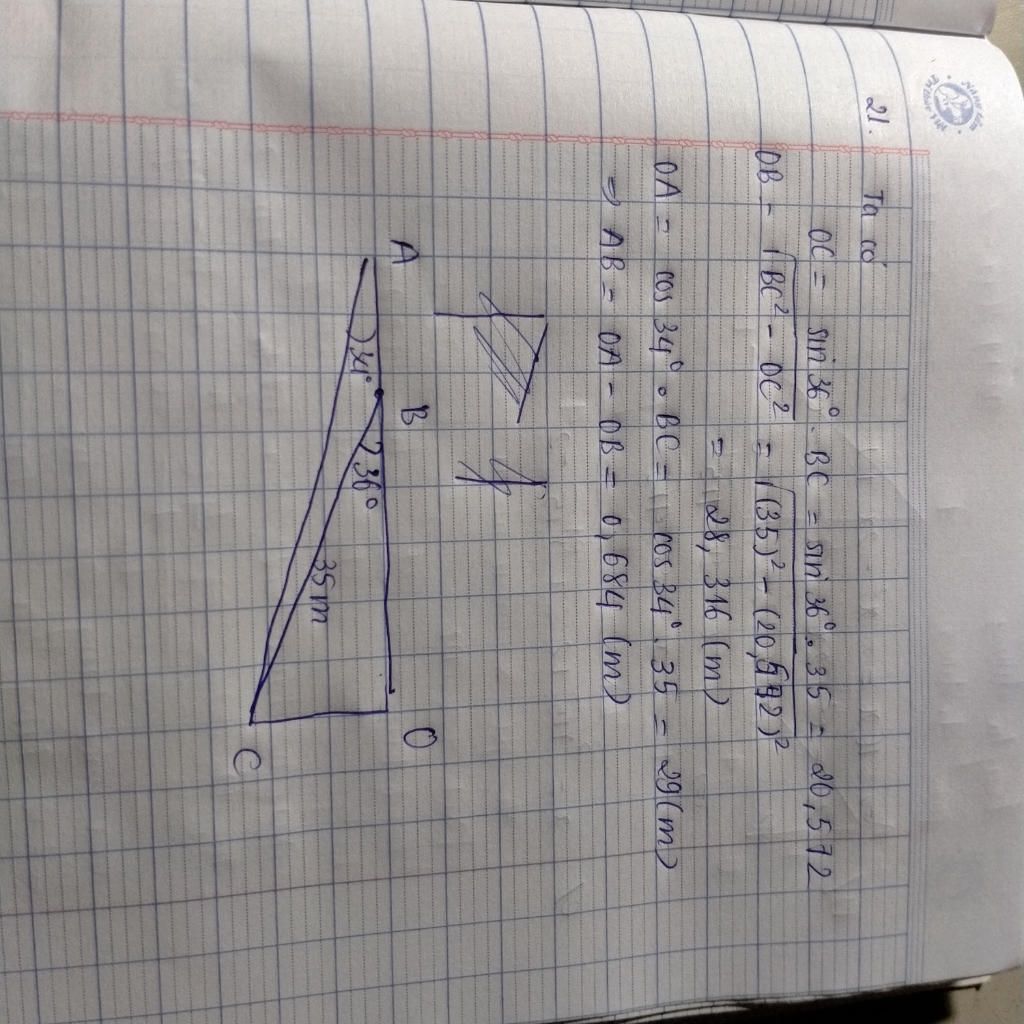 21.
Ta có
OC = sin 36° . BC = sin 36° . 35 = 20,572
OB = √BC² - OC² = √(35)² - (20,572)²
= 28,316 (m)
OA = cos 34° . BC = cos 34° . 35 = 29 (m)
⇒ AB = OA - OB = 0,684 (m)
A B O
34° 36°
35m
C